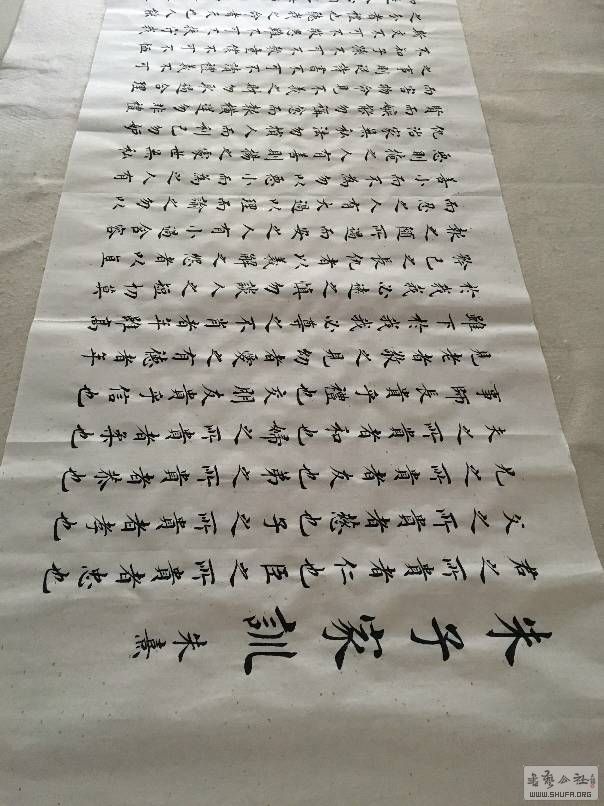 朱子家訓
朱熹
君之所貴者仁也臣之所貴者忠也
父之所貴者慈也子之所貴者孝也
兄之所貴者友也弟之所貴者恭也
夫之所貴者和也婦之所貴者柔也
事師長貴乎禮也交朋友貴乎信也
見老者敬之見幼者愛之有德者年
雖下於我我必尊之不肖者年雖高
於我我必遠之慎勿談人之短切莫
矜己之長仇者以義解之怨者以直
報之隨所遇而安之人有小過含容
而忍之人有大過以理而諭之勿以
善小而不為勿以惡小而為之人有
惡則掩之人有善則揚之處世無私
仇治家無私法勿損人而利己勿妒
賢而嫉能勿稱忿而報橫逆勿非禮
而害物命見不義之財勿取遇合理
之事則從詩書不可不讀禮義不可
不知子孫不可不教童僕不可不恤
斯文不可不敬患難不可不扶守我
書藝公社
WWW.SHUFA.ORG